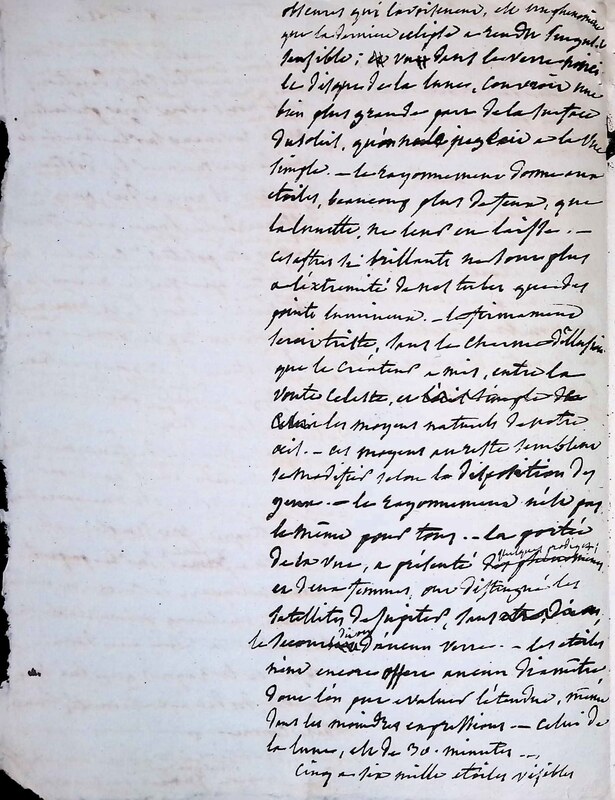 obscures qui l'avoisinent, est un phénomène
que la dernière eclipse a rendu singul.t
sensible; vu dans le verre noirci
le disque de la lune, couvroit une
bien plus grande part de la surface
du soleil, qu'on ne le jugeoit a la vue
simple. — le rayonnement donne aux
etoiles, beaucoup plus de feux, que
la lunette, ne leur en laisse. —
ces astres si brillants ne sont plus
a l'extremité de nos tubes que des
points lumineux. — le firmament
seroit triste, sans le charme d'illusion
que le Créateur a mis, entre la
voute celeste, et l'œil simple de
les moyens naturels de notre
œil. — ces moyens au reste semblent
se modifier selon la disposition des
yeux. — le rayonnement n'est pas
le même pour tous. — la portée
de la vue, a présenté des phénomenes
quelques prodiges;
et deux femmes, ont distingué les
satellites de Jupiter, sans
le secours d'aucun verre. — les etoiles
n'ont encore offert aucun diamètre
dont l'on put evaluer l'étendue, même
dans les moindres expressions — celui de
la lune, est de 30. minutes —
Cinq a six mille etoiles visibles